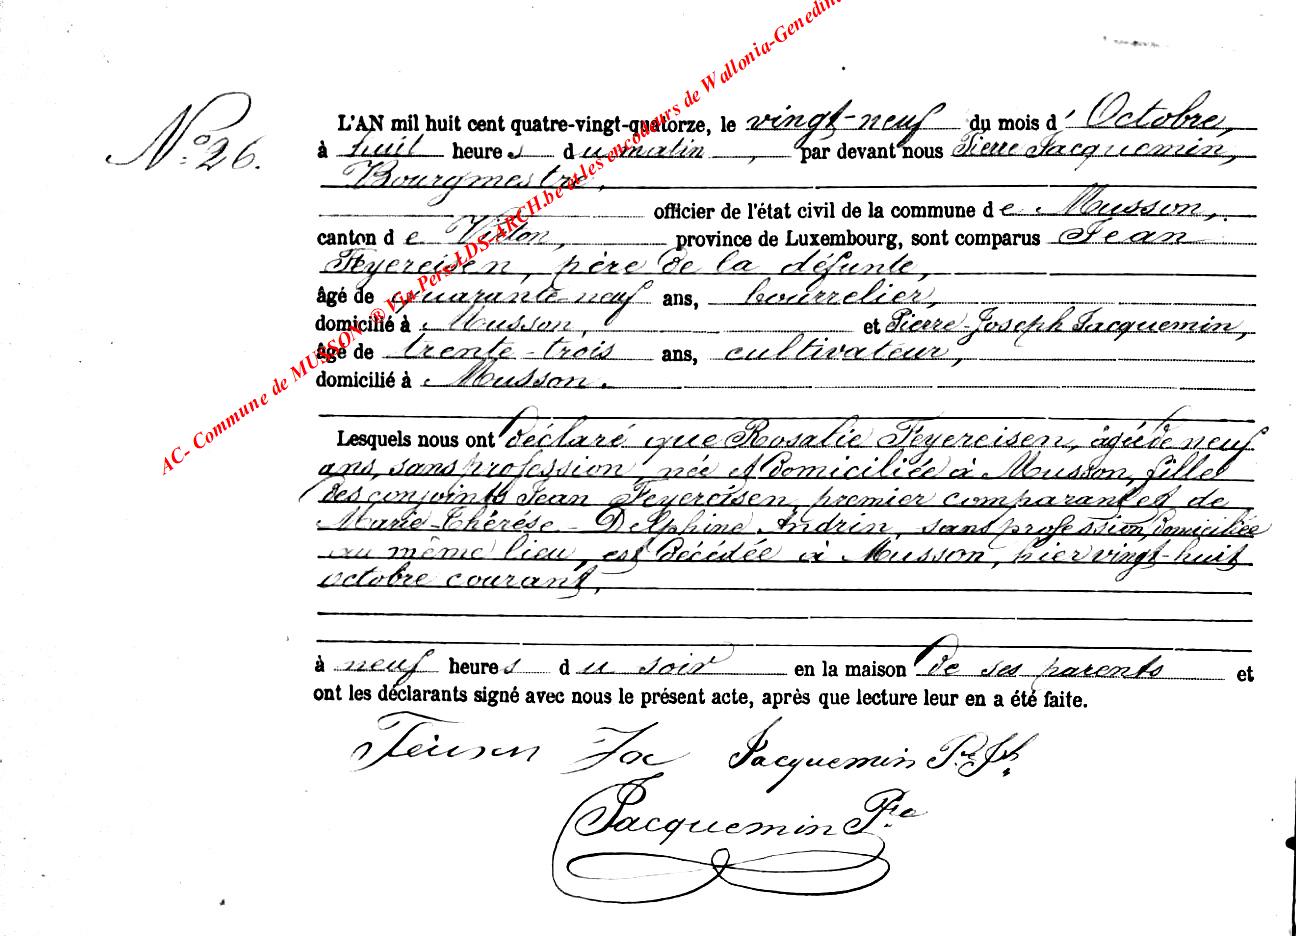 N° 26.
L'AN mil huit cent quatre-vingt-quatorze, le vingt-neuf du mois d' Octobre,
à huit heures du matin, par devant nous Pierre Jacquemin,
Bourgmestre,
officier de l'état civil de la commune de Musson,
canton de Virton, province de Luxembourg, sont comparus Jean
Feyereisen, père de la défunte,
âgé de quarante-neuf ans, bourrelier,
domicilié à Musson, et Pierre-Joseph Jacquemin,
âgé de trente-trois ans, cultivateur,
domicilié à Musson.
Lesquels nous ont déclaré que Rosalie Feyereisen, âgée de neuf
ans, sans profession, née et domiciliée à Musson, fille
des conjoints Jean Feyereisen, premier comparant et de
Marie-Thérèse-Delphine Andrin, sans profession, domiciliée
au même lieu, est décédée à Musson, hier vingt-huit
octobre courant,
à neuf heures du soir en la maison de ses parents et
ont les déclarants signé avec nous le présent acte, après que lecture leur en a été faite.
Jacquemin Pre Jh
Jacquemin Pre
AC- Commune de MUSSON ® Via Pers-LDS-ARCH.be et les encodeurs de Wallonia-Genedin